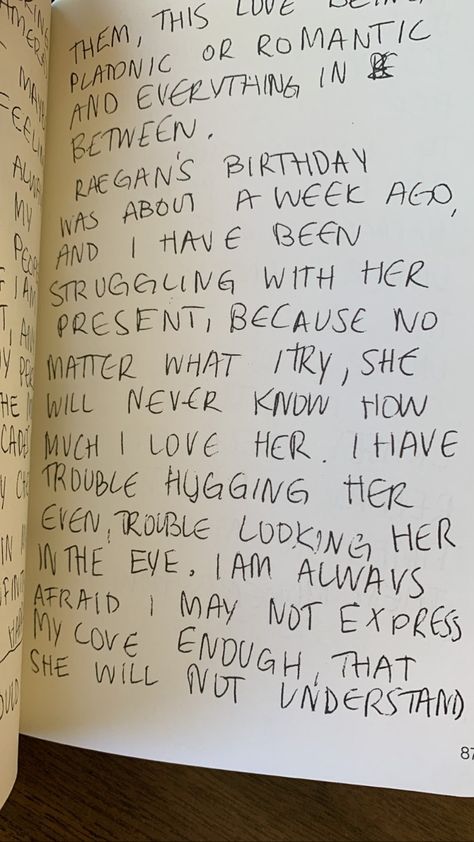 THEM, THIS LOVE BEING
PLATONIC OR ROMANTIC
AND EVERYTHING IN
BETWEEN.
RAEGAN'S BIRTHDAY
WAS ABOUT A WEEK AGO,
AND I HAVE BEEN
STRUGGLING WITH HER
PRESENT, BECAUSE NO
MATTER WHAT I TRY, SHE
WILL NEVER KNOW HOW
MUCH I LOVE HER. I HAVE
TROUBLE HUGGING HER
EVEN, TROUBLE LOOKING HER
IN THE EYE. I AM ALWAYS
AFRAID I MAY NOT EXPRESS
MY LOVE ENOUGH, THAT
SHE WILL NOT UNDERSTAND
87